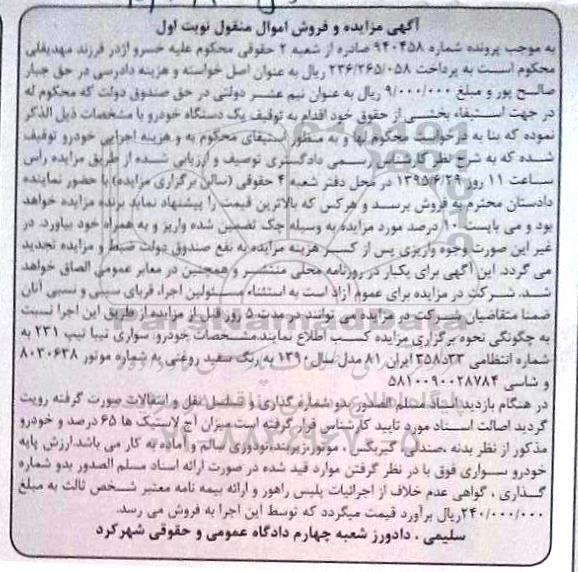 آگهی مزایده و فروش اموال منقول نوبت اول
به موجب پرونده شماره ۹۴۰۴۵۸ صادره از شعبه ۲ حقوقی محکوم علیه خسرو اژدر فرزند مهدیقلی
محکوم است به پرداخت ۲۳۶/۲۶۵/۰۵۸ ریال به عنوان اصل خواسته و هزینه دادرسی در حق جبار
صالح پور و مبلغ ۹/۰۰۰/۰۰۰ ریال به عنوان نیم عشر دولتی در حق صندوق دولت که محکوم له
در جهت استیفاء بخشی از حقوق خود اقدام به توقیف یک دستگاه خودرو با مشخصات ذیل الذکر
نموده که بنا به درخواست محکوم لها و به منظور استیفای محکوم به و هزینه اجرایی خودرو توقیف
شده که به شرح نظر کارشناس رسمی دادگستری توصیف و ارزیابی شده از طریق مزایده راس
ساعت ۱۱ روز ۱۳۹۵/۶/۲۹ در محل دفتر شعبه ۴ حقوقی (سالن برگزاری مزایده) با حضور نماینده
دادستان محترم به فروش برسد و هرکس که بالاترین قیمت را پیشنهاد نماید برنده مزایده خواهد
بود و می بایست ۱۰ درصد مورد مزایده به وسیله چک تضمین شده واریز و به همراه خود بیاورد. در
غیر این صورت وجوه واریزی پس از کسر هزینه مزایده به نفع صندوق دولت ضبط و مزایده تجدید
می گردد. این آگهی برای یکبار در روزنامه محلی منتشر و همچنین در معابر عمومی الصاق خواهد
شد. شرکت در مزایده برای عموم آزاد است به استثناء مسئولین اجرا، اقربای سببی و نسبی آنان
ضمنا متقاضیان شرکت در مزایده می توانند در مدت ۵ روز قبل از مزایده از طریق این اجرا نسبت
به چگونگی نحوه برگزاری مزایده کسب اطلاع نمایند.مشخصات خودرو: سواری تیبا تیپ ۲۳۱ به
شماره انتظامی ۳۳د۳۵۸ ایران ۸۱ مدل سال ۱۳۹۰ به رنگ سفید روغنی به شماره موتور ۸۰۳۰۶۳۸
و شاسی ۵۸۱۰۰۹۰۰۲۸۷۸۴
در هنگام بازدید اسناد مسلم الصدور بدو شماره گذاری و تسلسل نقل و انتقالات صورت گرفته رویت
گردید اصالت اسناد مورد تایید کارشناس قرار گرفته است میزان آج لاستیک ها ۶۵ درصد و خودرو
مذکور از نظر بدنه ،صندلی، گیربکس ، موتور،زیربند،تودوزی سالم و آماده به کار می باشد.ارزش پایه
خودرو سواری فوق با در نظر گرفتن موارد قید شده در صورت ارائه اسناد مسلم الصدور بدو شماره
گذاری ، گواهی عدم خلاف از اجرائیات پلیس راهور و ارائه بیمه نامه معتبر شخص ثالث به مبلغ
۲۴۰/۰۰۰/۰۰۰ریال برآورد قیمت میگردد که توسط این اجرا به فروش می رسد.
سلیمی ، دادورز شعبه چهارم دادگاه عمومی و حقوقی شهرکرد